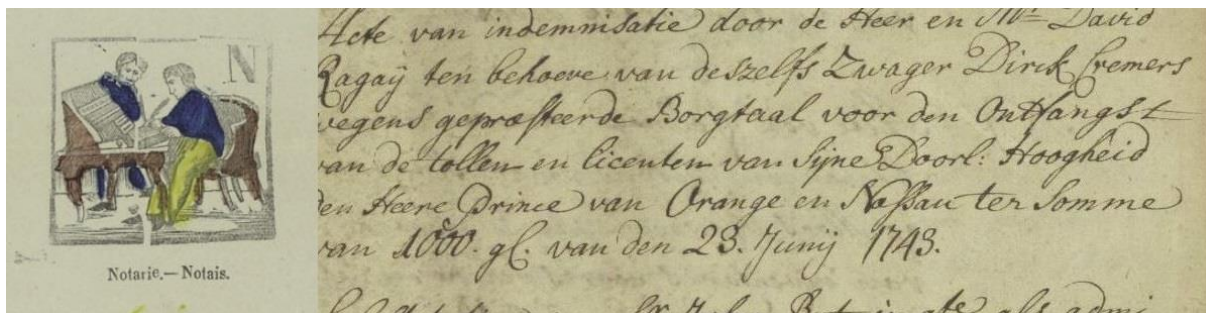 N
Notarie.—Notais.
Acte van indemnisatie door de Heer en Mr. David
Ragaÿ ten behoeve van deszelfs Zwager Dirck Cremers
wegens gepræsteerde Borgtaal voor den Ontfangst
van de tollen en licenten van Sijne Doorl: Hoogheid
den Heere Prince van Orange en Nassau ter Somme
van 1000. gl. van den 23. Junij 1743.
als admi